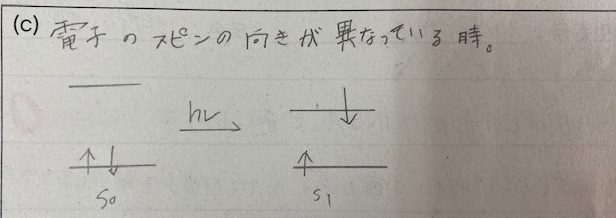 (c) 電子のスピンの向きが異なっている時。
hν
S₀ S₁